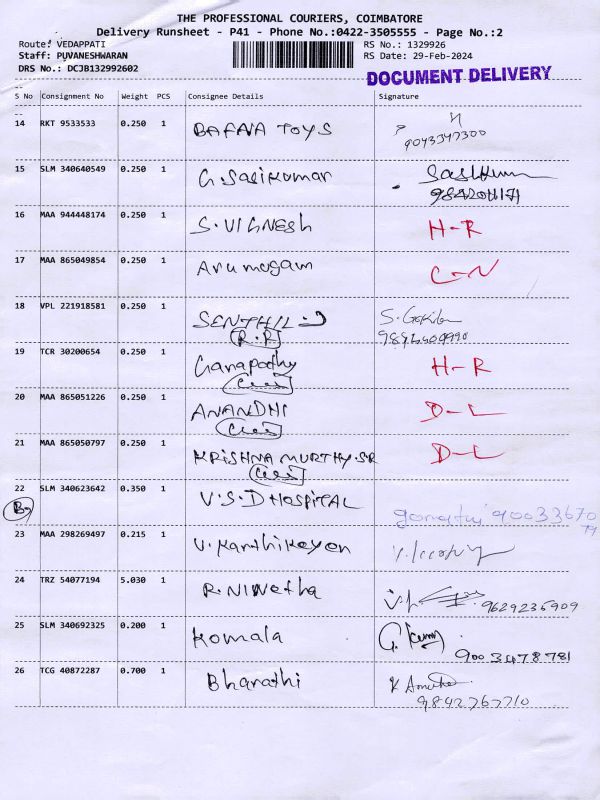 THE PROFESSIONAL COURIERS, COIMBATORE
Delivery Runsheet - P41 - Phone No.:0422-3505555 - Page No.:2
Route: VEDAPPATI RS No.: 1329926
Staff: PUVANESHWARAN RS Date: 29-Feb-2024
DRS No.: DCJB132992602
DOCUMENT DELIVERY
S No Consignment No Weight PCS Consignee Details Signature
14 RKT 9533533 0.250 1 BAFNA TOYS 9043347300
15 SLM 340640549 0.250 1 G. Sasikumar
16 MAA 944448174 0.250 1 S. VIGNESH H-R
17 MAA 865049854 0.250 1 Arumugam C-N
18 VPL 221918581 0.250 1 SENTHIL
R.R
19 TCR 30200654 0.250 1 Ganapathy H-R
20 MAA 865051226 0.250 1 ANANDHI D-L
21 MAA 865050797 0.250 1 KRISHNA MURTHY.SR D-L
22 SLM 340623642 0.350 1 V.S.D HOSPITAL
23 MAA 298269497 0.215 1 V. Karthikeyan
24 TRZ 54077194 5.030 1 R. NIWetha 9629236909
25 SLM 340692325 0.200 1 Komala 9003478781
26 TCG 40872287 0.700 1 Bharathi
9842767710